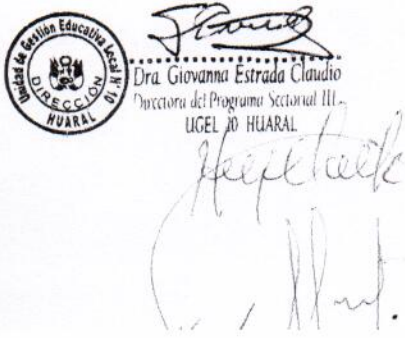 Unidad de Gestión Educativa Local N° 10
DIRECCIÓN
HUARAL
Dra. Giovanna Estrada Claudio
Directora del Programa Sectorial III
UGEL 10 HUARAL